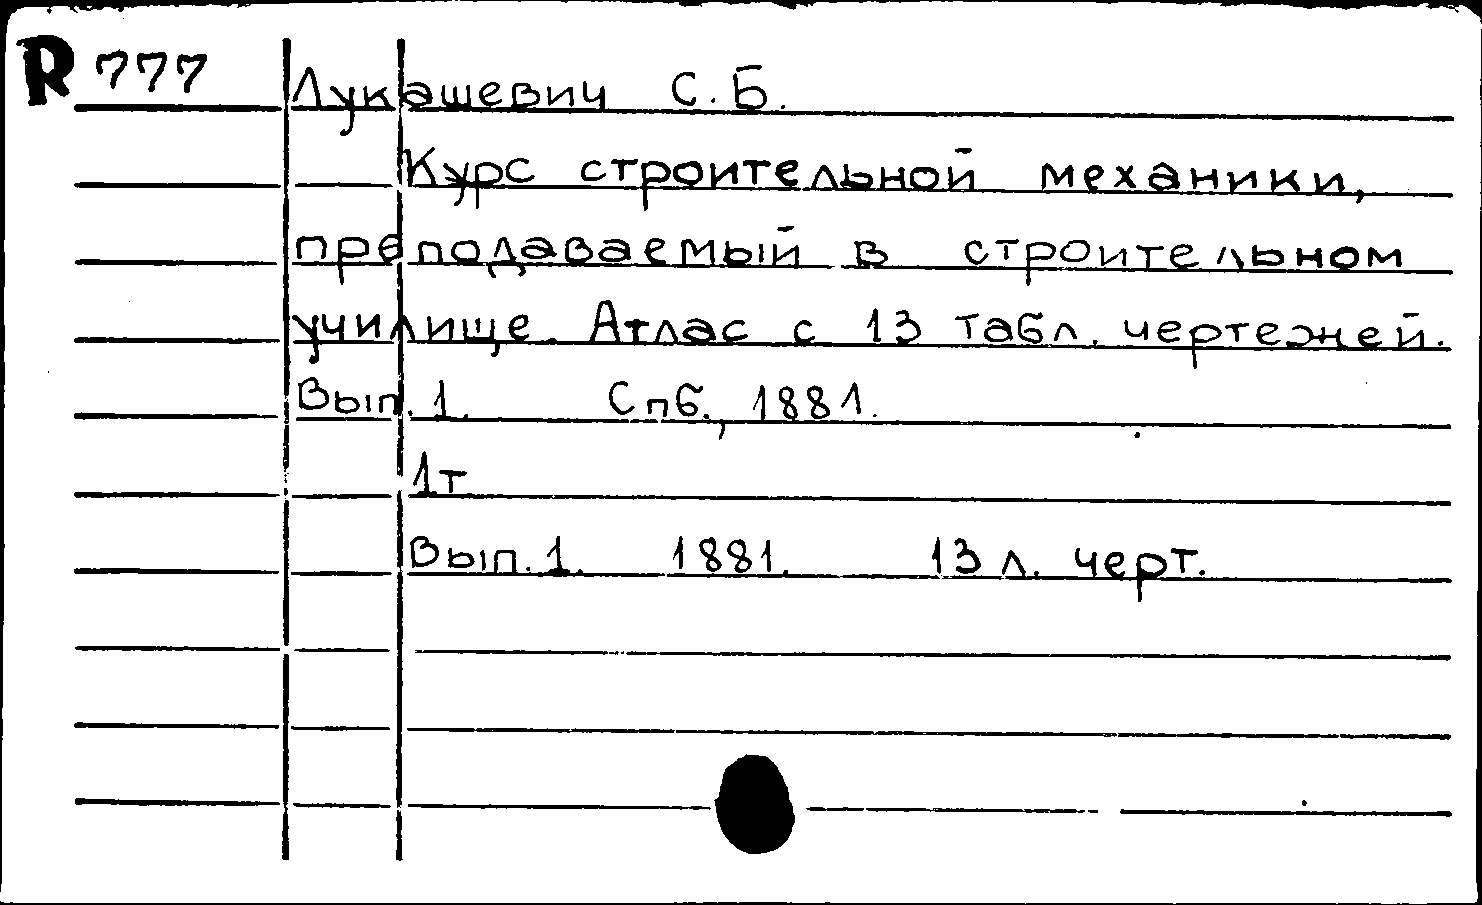 R 777 Лукашевич С.Б.
Курс строительной механики,
преподаваемый в строительном
училище. Атлас с 13 табл. чертежей.
Вып. 1. Спб., 1881.
1т
Вып. 1. 1881. 13 л. черт.